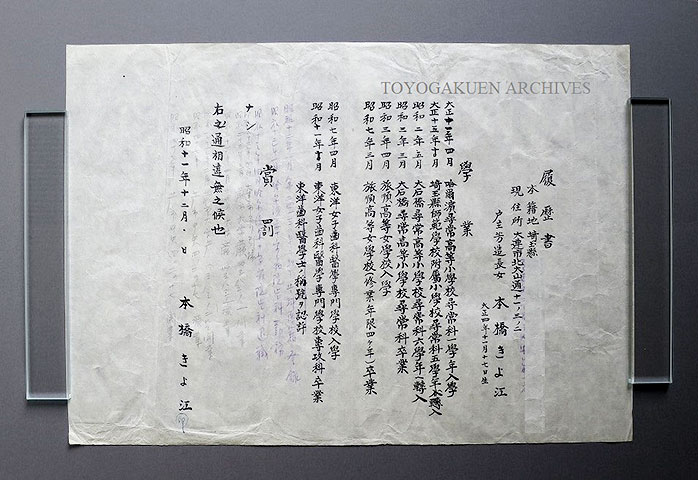 TOYOGAKUEN ARCHIVES
履歴書
本籍地 埼玉縣
現住所 大連市北大山通
戸主芳造長女 本橋きよ江
大正四年十一月十七日生
學業
大正十一年四月 哈爾濱尋常高等小學校尋常科一學年入學
大正十五年十月 埼玉縣師範學校附属小學校尋常科五學年ヘ轉入
昭和二年五月 大石橋尋常高等小學校尋常科六學年ヘ轉入
昭和三年三月 大石橋尋常高等小學校尋常科卒業
昭和三年四月 旅順高等女學校入學
昭和七年三月 旅順高等女學校(修業年限四ヶ年)卒業
昭和七年四月 東洋女子歯科醫學專門學校入學
昭和十一年十月 東洋女子歯科醫學專門學校專攻科卒業
東洋歯科醫學士ノ稱號ヲ認許
賞罰
ナシ
右之通相違無之候也
昭和十一年十二月 日
本橋きよ江